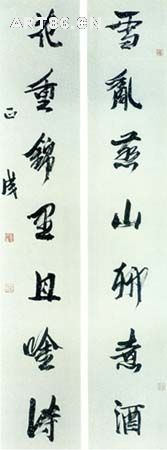 ART86.CN
雪亂燕山聊煮酒
花重錦里且唫詩
正成